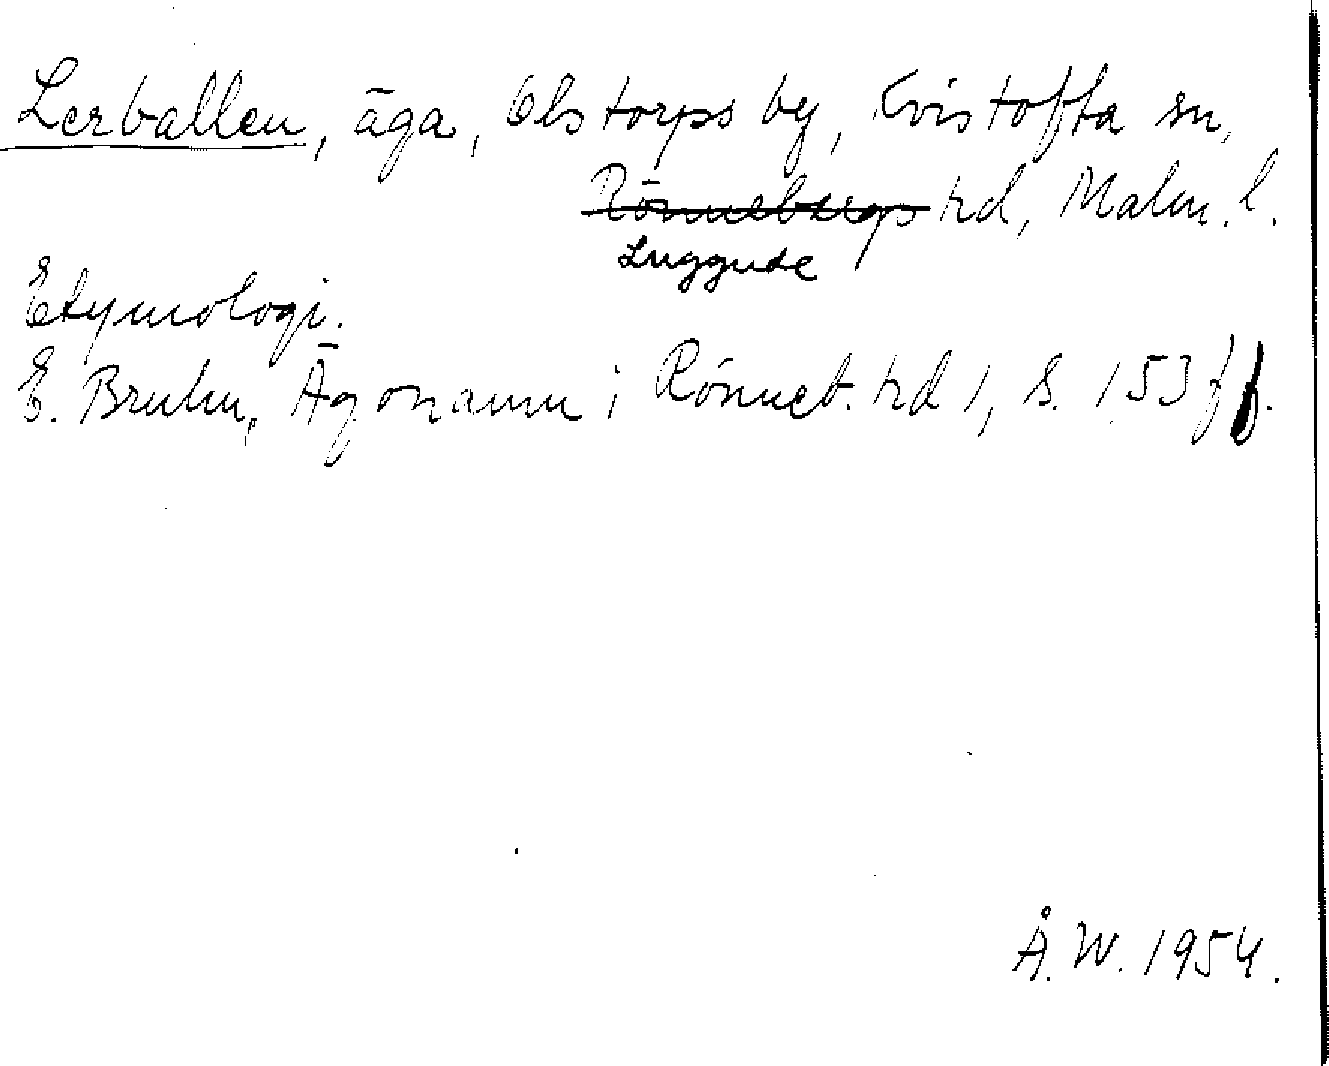 Lerballen, äga, Olstorps by, Kvistofta sn,
Rönnebergs hd, Malm. l.
Luggude
Etymologi.
E. Bruhn, Ägonamn i Rönneb. hd 1, S. 153 ff.
Å. W. 1954.